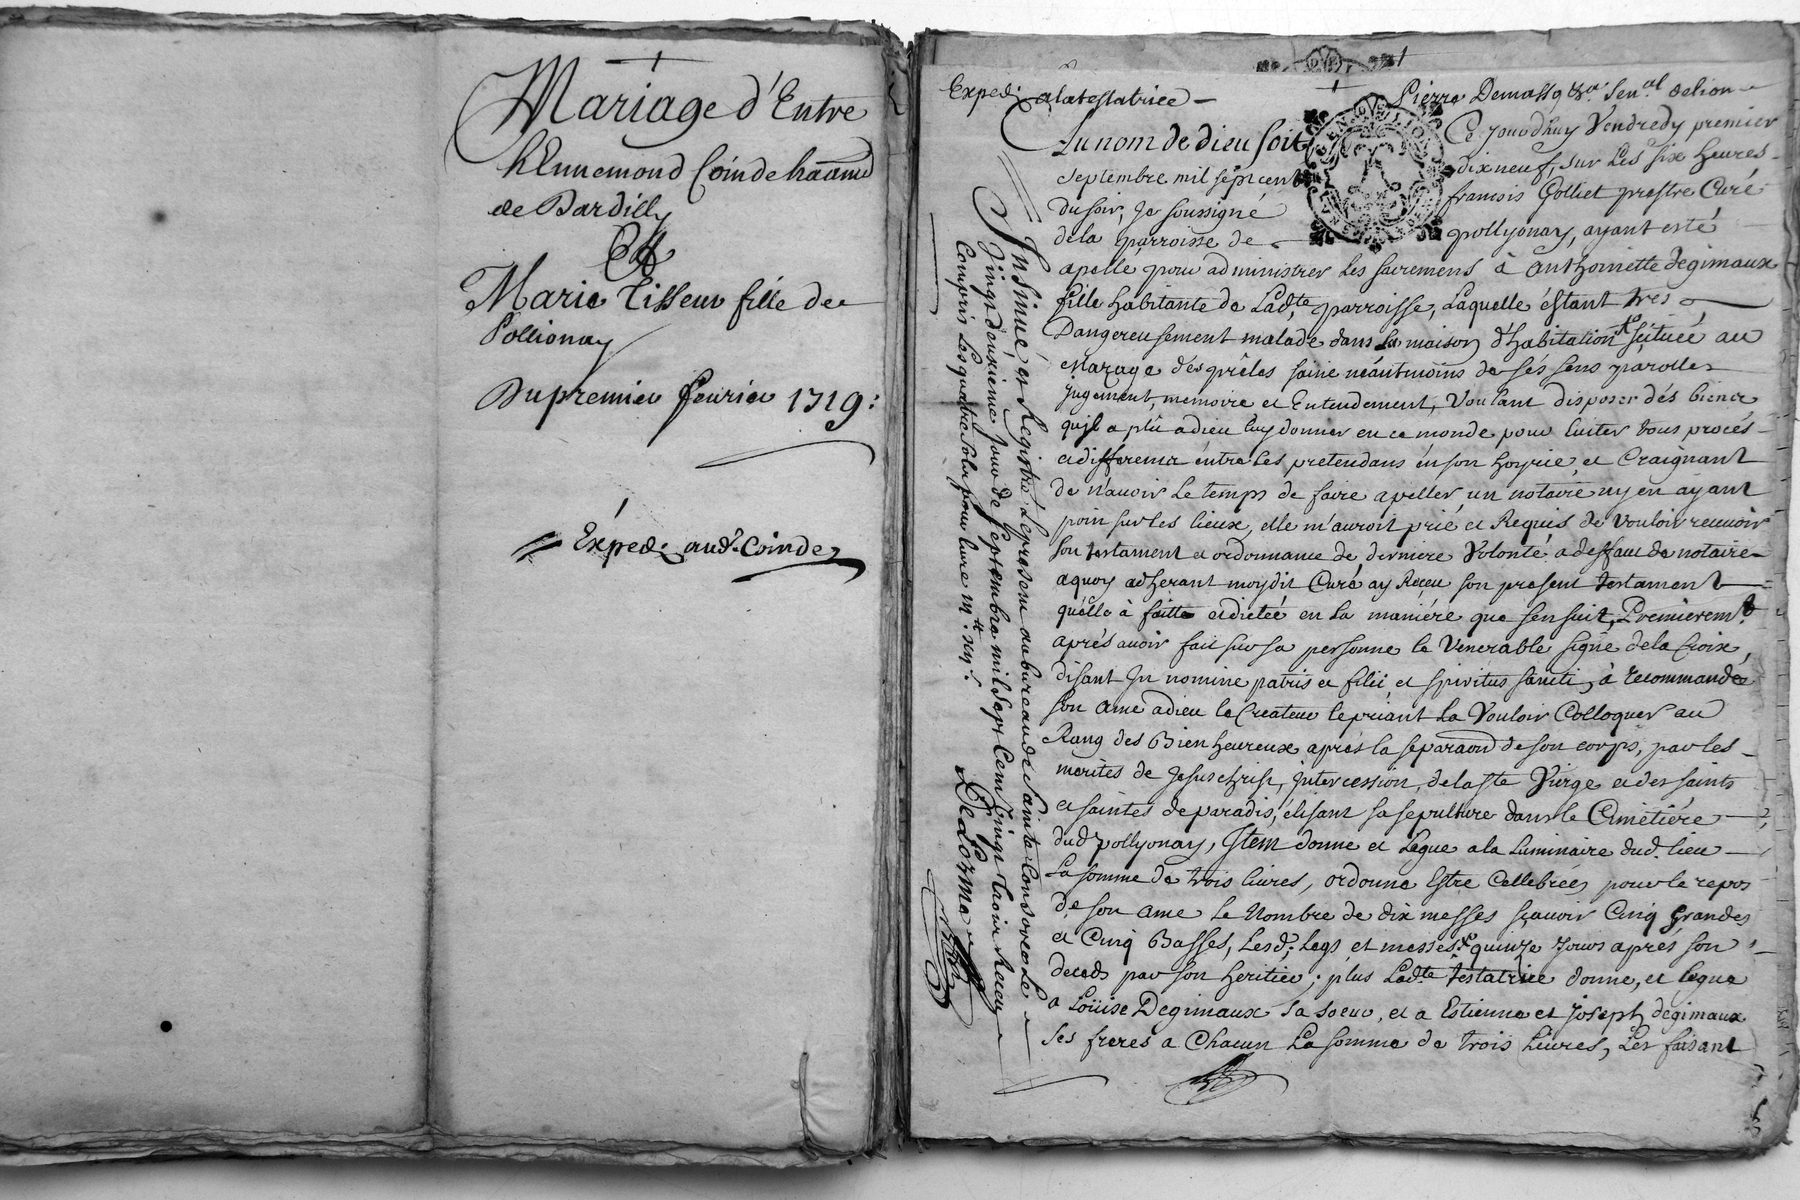 Mariage d'Entre
hEnnemond Coinde
de Dardilly
Et
Marie Tisseur fille de
Pollionay
Du premier feurier 1719:
Exped. aud. Coinde
Exped. alatestatrice
Pierre Demasso
delion
Au nom de dieu soit
Ce jourdhuy Vendredy premier
septembre mil sept cent
dix neuf, sur Les six heures
du soir, Je soussigné
francois Golliet prestre Curé
dela parroisse de
pollyonay, ayant esté
apellé pour administrer les sacremens à anthoinette degimaux
fille habitante de Ladte parroisse, Laquelle estant tres
Dangereusement malade dans sa maison d'habitation scituée au
des prêles saine néantmoins de sés sens parolles
jugement, memoire et Entendement, Voulant disposer dés biens
quil a plû a dieu luy donner en ce monde pour euiter tous procés
et differents entre Les pretendans en son hoyrie et Craignant
de n'auoir Le temps de faire apeller un notaire ny en ayant
poin sur les lieux, elle m'auroit prié et Requis de vouloir receuoir
son testament et ordonnance de derniere Volonté a deffaut de notaire
aquoy adherant moydit Curé ay Receu son present testament
quelle à faitte et dictée en La maniére que sensuit, Premierem.t
aprés auoir fait sur sa personne le Venerable signe dela Croix,
disant Jn nomine patris et filii et spiritus sancti, à recommandé
son ame a dieu le Createur le priant La Vouloir Colloquer au
Rang des Bien heureux aprés la separaon de son corps, par les
merites de Jesus christ, jntercession, dela ste Vierge et des saints
et saintes de paradis, élisant sa sepulture dans le Cimétiére
dud pollyonay, Jtem donne et Légue a la Luminaire dud. lieu
La somme de trois liures, ordonne Estre Cellebrées pour le repos
de son ame Le Nombre de dix messes sçauoir Cinq grandes
et Cinq Basses, Lesd. Legs et messes quinze jours aprés son
decéds par son heritier; plus Ladte testatrice donne, et legue
a Loüise Degimaux sa soeur, et a Estienne et joseph degimaux
ses freres a Chacun La somme de trois Liures, Les faisant
Jnsinué et Registré Lepresent au bureau de Sainte Consorce Le
Vingt deuxieme jour de septembre mil sept Cent Vingt trois Receu
Compris Les quatre sols pour liure
Deldorme